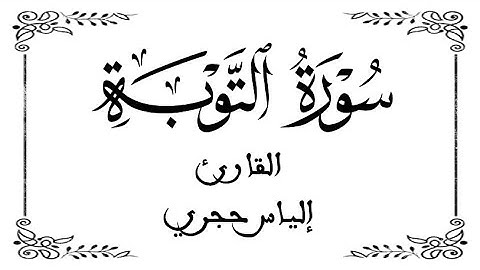 سُوْرَةُ ٱلتَّوْبَةِ
القارئ
إلياس حجري